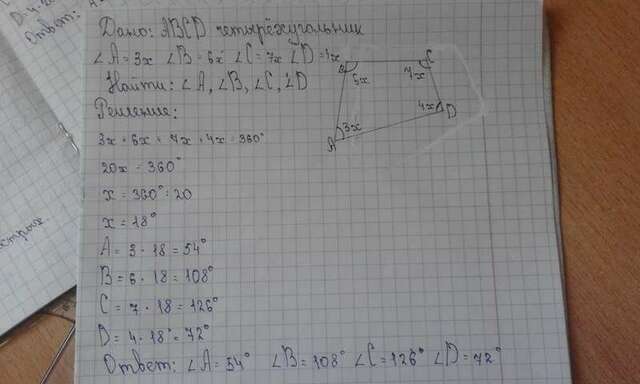 Дано: ABCD четырёхугольник
∠A = 3x ∠B = 6x ∠C = 7x ∠D = 4x
Найти: ∠A, ∠B, ∠C, ∠D
Решение:
3x + 6x + 7x + 4x = 360°
20x = 360°
x = 360° : 20
x = 18°
A = 3 · 18 = 54°
B = 6 · 18 = 108°
C = 7 · 18 = 126°
D = 4 · 18° = 72°
Ответ: ∠A = 54° ∠B = 108° ∠C = 126° ∠D = 72°
B
C
6x
7x
4x
D
3x
A
Ответ: